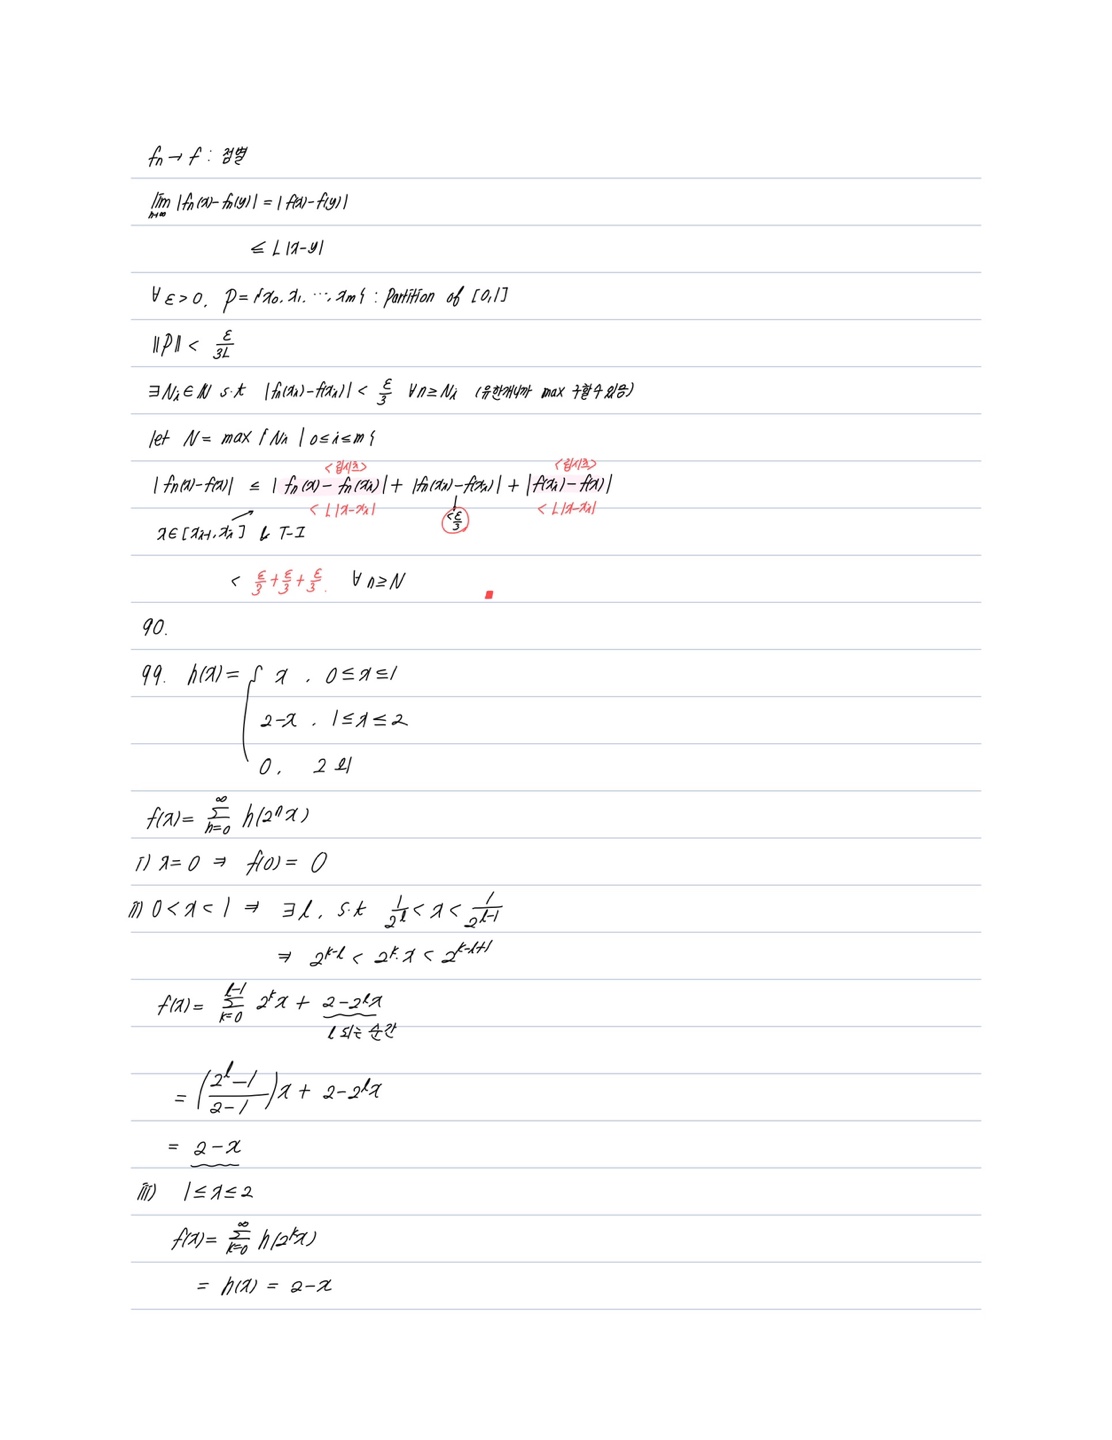 fn → f : 점별
lim n→∞ |fn(x)-fn(y)| = |f(x)-f(y)|
≤ L|x-y|
∀ε>0. P={x0, x1, ⋯, xm} : Partition of [0,1]
||P|| < ε/3L
∃Ni∈ℕ s.t |fn(xi)-f(xi)| < ε/3 ∀n≥Ni (유한개니까 max 구할수있음)
let N = max{Ni | 0≤i≤m}
<립시츠> <립시츠>
|fn(x)-f(x)| ≤ |fn(x)-fn(xi)| + |fn(xi)-f(xi)| + |f(xi)-f(x)|
< L|x-xi| < ε/3 < L|x-xi|
x∈[xi-1, xi] & T-I
< ε/3 + ε/3 + ε/3. ∀n≥N
90.
99. h(x) = { x , 0≤x≤1
2-x , 1≤x≤2
0, 그 외
f(x) = ∑_{n=0}^{∞} h(2ⁿx)
i) x=0 ⇒ f(0) = 0
ii) 0<x<1 ⇒ ∃l, s.t 1/2^l < x < 1/2^{l-1}
⇒ 2^{k-l} < 2^k·x < 2^{k-l+1}
f(x) = ∑_{k=0}^{l-1} 2^k x + 2-2^l x
l 되는 순간
= ((2^l-1)/(2-1))x + 2-2^l x
= 2-x
iii) 1≤x≤2
f(x) = ∑_{k=0}^{∞} h(2^k x)
= h(x) = 2-x